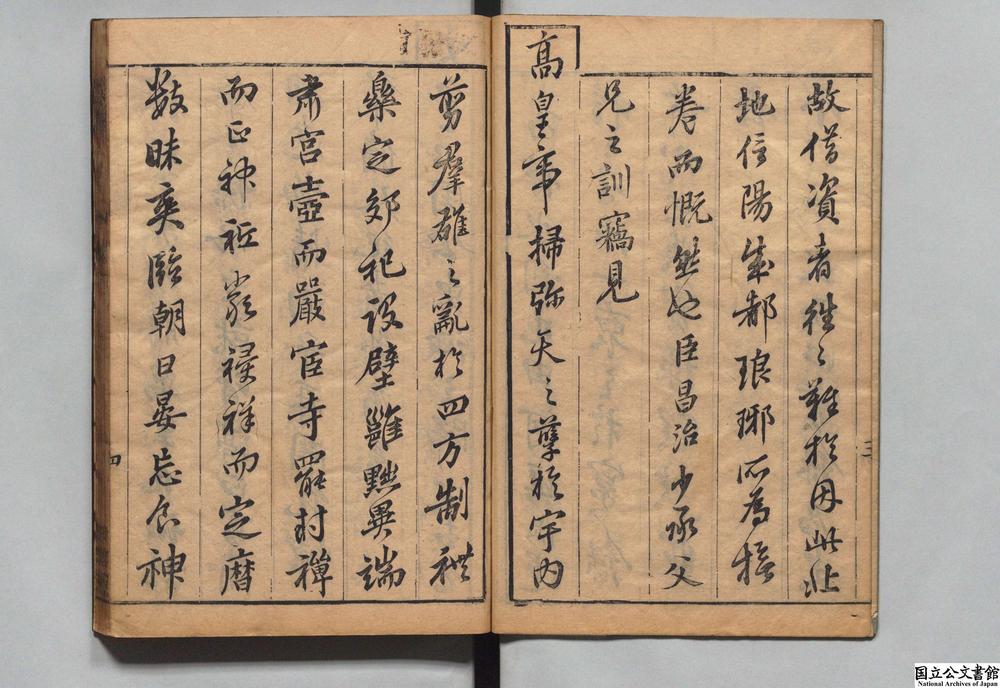 故借資者往々難於用此北
地信陽成都琅琊所為掩
卷而慨然也臣昌治少承父
兄之訓竊見
高皇帝掃弥天之孽於宇内
三
剪羣雄之亂於四方制禮
樂定郊祀設壁雝黜異端
肅宮壼而嚴宦寺罷封禪
而正神祇祥而定曆
數昧爽臨朝日晏忘食神
四
国立公文書館
National Archives of Japan